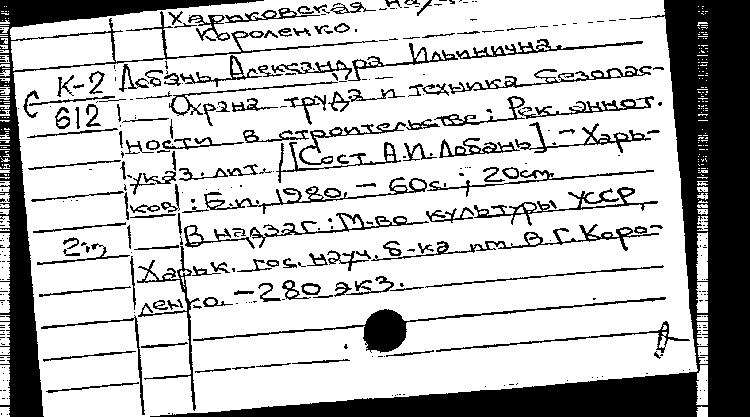 Харьковская
Короленко.
С К-2 Лобань, Александра Ильинична.
612 Охрана труда и техника безопас-
ности в строительстве: Рек. аннот.
указ. лит. /[Сост. А.И. Лобань]. - Харь-
ков : Б.и., 1980. - 60с. ; 20см.
2м В надзаг.: М-во культуры УССР,
Харьк. гос. науч. б-ка им. В.Г. Коро-
ленко. - 280 экз.